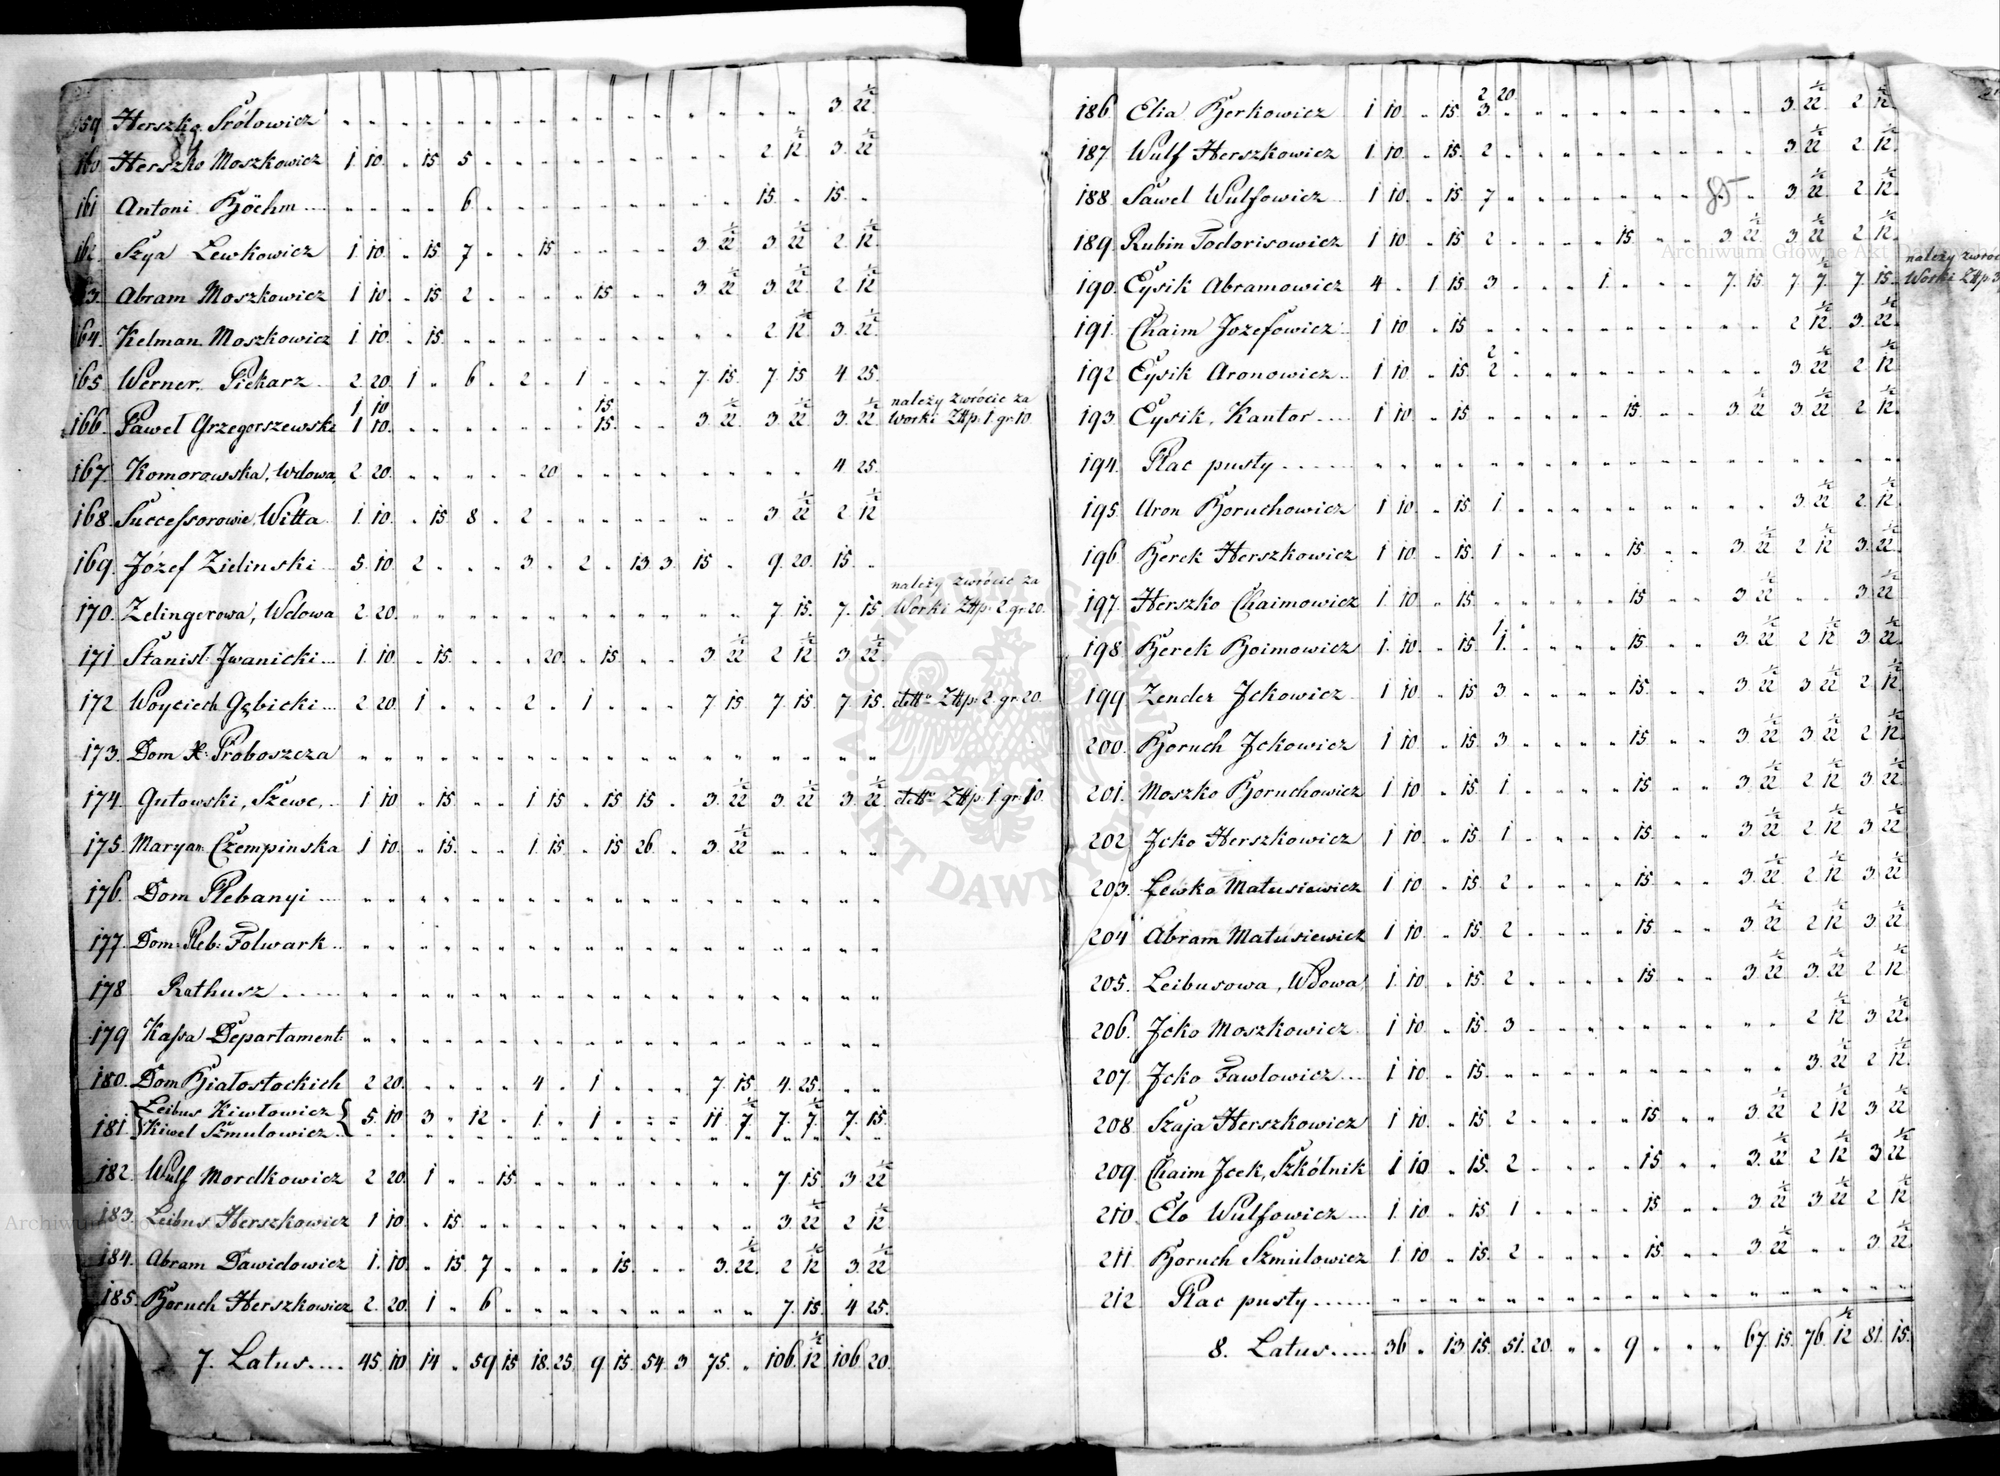 159 Herszko Srólowicz " " " " " " " " " " " " " " " " 3. 22 ½
84
160. Herszko Moszkowicz 1. 10. " 15. 5 " " " " " " " " " 2. 12 ½ 3. 22 ½
161 Antoni Böehm .... " " " " 6. " " " " " " " " " 15. " 15. "
162. Szya Lewkowicz 1. 10. " 15. 7 " " 15 " " " " 3. 22 ½ 3. 22 ½ 2 12 ½
163. Abram Moszkowicz 1 10 " 15 2 " " " " 15 " " 3. 22 ½ 3. 22 ½ 2 12 ½
164. Kelman Moszkowicz 1 10. " 15. " " " " " " " " " " 2. 12 ½ 3. 22 ½
165 Werner. Piekarz 2. 20. 1 " 6 " 2. " 1 " " " 7. 15 7. 15 4. 25
1 10 " 15
166. Paweł Grzegorszewski 1 10. " " " " " " " 15. " " 3. 22 ½ 3. 22 ½ 3. 22 ½ należy zwrócic za
Worki Złłp. 1. gr. 10
167. Komorowska, Wdowa, 2. 20. " " " " " 20 " " " " " " " " 4. 25.
168. Successorowie, Witta 1. 10. " 15. 8 " 2. " " " " " " " 3. 22 ½ 2. 12 ½
169. Józef Zielinski 5. 10. 2 " " " 3. " 2. " 13 3. 15. " 9. 20. 15. "
170. Zelingerowa, Wdowa 2. 20. " " " " " " " " " " " " 7. 15. 7. 15 należy zwrócic za
Worki Złłp. 2. gr. 20.
171 Stanisł: Jwanicki.... 1. 10. " 15. " " " 20. " 15. " " 3. 22 ½ 2. 12 ½ 3. 22 ½
172 Woyciech Gębicki... 2 20. 1 " " " 2. " 1. " " " 7. 15. 7. 15. 7. 15. detto Złłp. 2. gr. 20.
173. Dom X: Proboszcza " " " " " " " " " " " " " " " " " "
174. Gutowski, Szewc, .. 1 10 " 15. " " 1 15 " 15 15. " 3. 22 ½ 3. 22 ½ 3. 22 ½ detto Złłp. 1. gr. 10.
175. Maryan Czempinska 1 10. " 15. " " 1. 15. " 15 26. " 3. 22 ½ " " " "
176. Dom Plebanyi .... " " " " " " " " " " " " " " " " " "
177. Dom: Pleb: Folwark .. " " " " " " " " " " " " " " " " " "
178 Rathusz ........ " " " " " " " " " " " " " " " " " "
179 Kassa Departament: " " " " " " " " " " " " " " " " " "
180. Dom Białostockich 2 20. " " " " 4 " 1 " " " 7. 15. 4. 25. " "
181. { Leibus Kiwłowicz } 5. 10. 3 " 12 " 1. " 1 " " " 11. 7 ½ 7. 7 ½ 7. 15.
Kiwel Szmulowicz " " " " " " " " " " " " " " " " " "
182. Wulf Mordkowicz 2. 20. 1 " " 15. " " " " " " " " 7. 15. 3. 22 ½
183. Leibus Herszkowicz 1 10. " 15. " " " " " " " " " " 3. 22 ½ 2. 12 ½
184. Abram Dawidowicz 1. 10. " 15. 7 " " " " 15. " " 3. 22. ½ 2 12 ½ 3. 22 ½
185. Boruch Herszkowicz 2. 20. 1 " 6 " " " " " " " " " 7. 15. 4 25.
7. Latus.... 45. 10 14 " 59. 15 18. 25. 9 15. 54. 3 75. " 106. 12 ½ 106. 20.
2 20.
186. Elia Berkowicz 1 10. " 15. 3. " " " " " " " " " 3. 22 ½ 2. 12 ½
187. Wulf Herszkowicz 1. 10. " 15. 2 " " " " " " " " " 3. 22 ½ 2. 12 ½
188. Sawel Wulfowicz 1 10. " 15 7 " " " " " " " " " 3. 22 ½ 2. 12 ½
85
189. Rubin Todorisowicz 1 10 " 15 2 " " " " 15. " " 3. 22 ½ 3. 22 ½ 2. 12 ½
190. Eysik Abramowicz 4 " 1 15. 3 " " " 1. " " " 7. 15. 7. 7 ½ 7. 15. należy zwróc
Worki Złłp. 3
191. Chaim Jozefowicz 1 10 " 15 " " " " " " " " " " 2 12 ½ 3. 22 ½
2 "
192 Eysik Aronowicz .. 1 10. " 15. 2 " " " " " " " " " 3. 22 ½ 2. 12 ½
193. Eysik, Kantor.... 1 10. " 15 " " " " " 15. " " 3. 22 ½ 3. 22 ½ 2. 12 ½
194. Plac pusty ....... " " " " " " " " " " " " " " " " " "
195. Aron Boruchowicz 1 10. " 15. 1. " " " " " " " " " 3. 22 ½ 2. 12 ½
196. Berek Herszkowicz 1 10. " 15. 1 " " " " 15. " " 3. 22 ½ 2. 12 ½ 3. 22 ½
197. Herszko Chaimowicz 1. 10. " 15. " " " " " 15. " " 3. 22 ½ " " 3. 22 ½
1. "
198. Berek Boimowicz 1. 10. " 15. 1. " " " " 15. " " 3. 22 ½ 2 12 ½ 3. 22 ½
199. Zender Jckowicz 1 10. " 15. 3 " " " " 15. " " 3. 22 ½ 3. 22 ½ 2. 12 ½
200. Boruch Jckowicz 1 10. " 15. 3 " " " " 15. " " 3. 22 ½ 3. 22 ½ 2. 12 ½
201. Moszko Boruchowicz 1 10. " 15. 1 " " " " 15. " " 3. 22 ½ 2. 12 ½ 3. 22 ½
202. Jcko Herszkowicz 1 10. " 15. 1 " " " " 15. " " 3. 22 ½ 2. 12 ½ 3. 22 ½
203. Lewko Matusiewicz 1 10. " 15. 2 " " " " 15. " " 3. 22 ½ 2. 12 ½ 3. 22 ½
204 Abram Matusiewicz 1 10. " 15. 2 " " " " 15. " " 3. 22 ½ 2. 12 ½ 3. 22 ½
205. Leibusowa, Wdowa, 1. 10. " 15. 2 " " " " 15. " " 3. 22 ½ 3. 22 ½ 2. 12 ½
206. Jcko Moszkowicz 1 10. " 15. 3 " " " " " " " " " 2. 12 ½ 3. 22 ½
207. Jcko Fawlowicz.... 1 10. " 15. " " " " " " " " " " 3. 22 ½ 2. 12 ½
208. Szaja Herszkowicz 1 10. " 15. 2 " " " " 15. " " 3. 22 ½ 2 12 ½ 3. 22 ½
209. Chaim Jcek, Szkólnik 1 10 " 15. 2 " " " " 15. " " 3. 22 ½ 2 12 ½ 3. 22 ½
210. Elo Wulfowicz.... 1. 10. " 15. 1 " " " " 15. " " 3. 22 ½ 3. 22 ½ 2. 12 ½
211. Boruch Szmulowicz 1 10. " 15. 2 " " " " 15. " " 3. 22 ½ " " 3. 22 ½
212. Plac pusty....... " " " " " " " " " " " " " " " " " "
8. Latus.... 36. " 13. 15. 51. 20. " " 9 " " " 67. 15. 76. 12 ½ 81. 15.